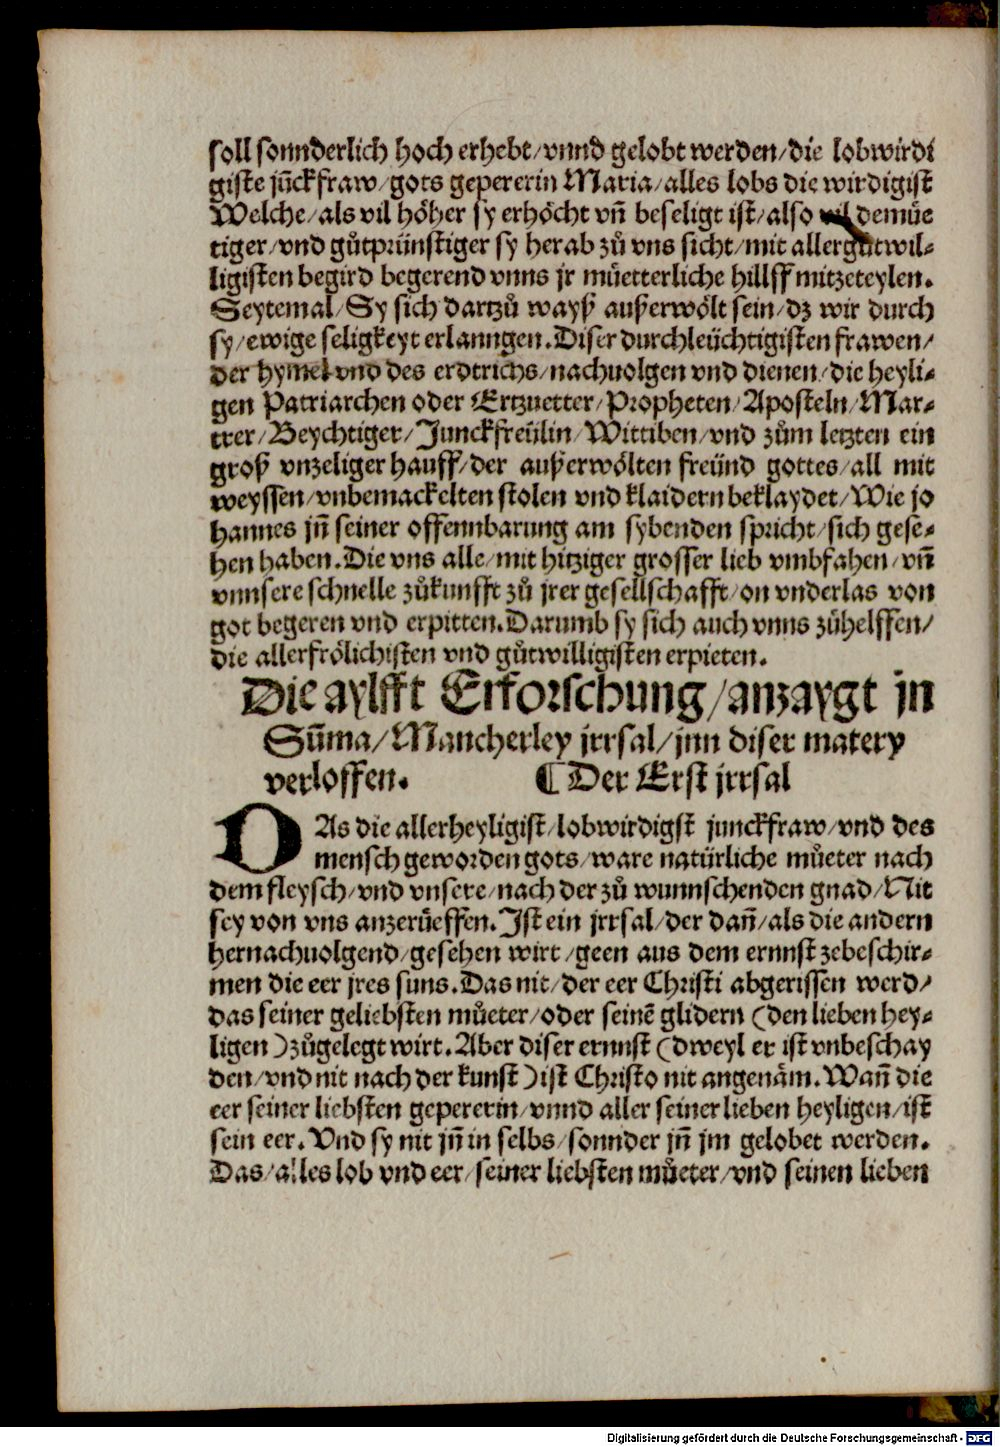 soll sonnderlich hoch erhebt/vnnd gelobt werden/die lobwirdi
giste jūckfraw/gots gepererin Maria/alles lobs die wirdigist
Welche/als vil höher sy erhöcht vn̄ beseligt ist/also vil demüe
tiger/vnd gůtprünstiger sy herab zů vns sicht/mit allergůtwil⸗
ligisten begird begerend vnns jr müetterliche hillff mitzeteylen.
Seytemal/Sy sich dartzů wayß außerwölt sein/dz wir durch
sy/ewige seligkeyt erlanngen.Diser durchleüchtigisten frawen/
der hymel vnd des erdtrichs/nachuolgen vnd dienen/die heyli⸗
gen Patriarchen oder Ertzuetter/Propheten/Aposteln/Mar⸗
trer/Beychtiger/Junckfreülin/Wittiben/vnd zům letzten ein
groß vnzeliger hauff/der außerwölten freünd gottes/all mit
weyssen/vnbemackelten stolen vnd klaidern beklaydet/Wie jo
hannes jn̄ seiner offennbarung am sybenden spricht/sich gese⸗
hen haben.Die vns alle/mit hitziger grosser lieb vmbfahen/vn̄
vnnsere schnelle zůkunfft zů jrer gesellschafft/on vnderlas von
got begeren vnd erpitten.Darumb sy sich auch vnns zůhelffen/
die allerfrölichisten vnd gůtwilligisten erpieten.
Die aylfft Erforschung/anzaygt jn
Sūma/Mancherley jrrsal/jnn diser matery
verloffen. ¶ Der Erst jrrsal
DAs die allerheyligist/lobwirdigst junckfraw/vnd des
mensch geworden gots/ware natürliche můeter nach
dem fleysch/vnd vnsere/nach der zů wunnschenden gnad/Nit
sey von vns anzerüeffen.Ist ein jrrsal/der dan̄/als die andern
hernachuolgend/gesehen wirt/geen aus dem ernnst zebeschir⸗
men die eer jres suns.Das nit/der eer Christi abgerissen werd/
das seiner geliebsten můeter/oder seinē glidern (den lieben hey⸗
ligen) zůgelegt wirt.Aber diser ernnst (dweyl er ist vnbeschay
den/vnd nit nach der kunst) ist Christo nit angenäm.Wan̄ die
eer seiner liebsten gepererin/vnnd aller seiner lieben heyligen/ist
sein eer.Vnd sy nit jn̄ in selbs/sonnder jn̄ jm gelobet werden.
Das/alles lob vnd eer/seiner liebsten můeter/vnd seinen lieben
Digitalisierung gefördert durch die Deutsche Forschungsgemeinschaft - DFG